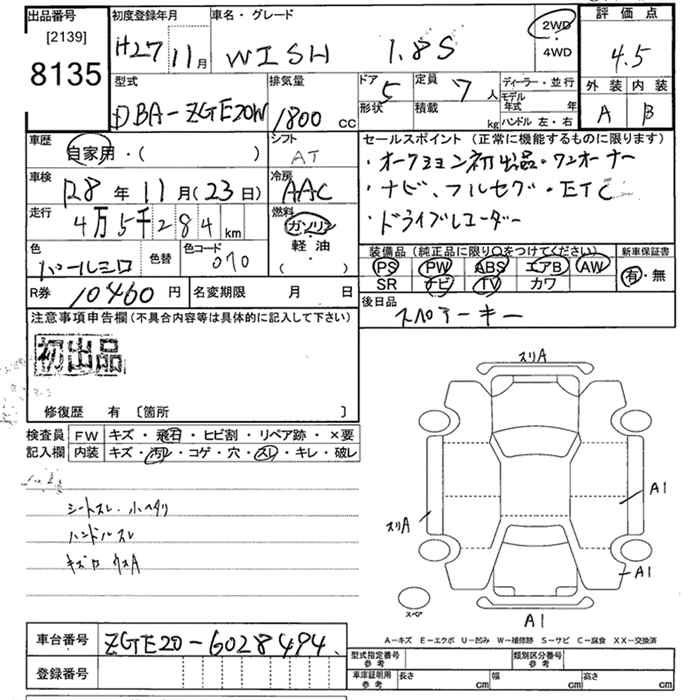 出品番号
[2139]
8135
初度登録年月
H27 11月
車名・グレード
WISH 1.8S
2WD
4WD
評価点
4.5
外装 内装
A B
型式
DBA-ZGE20W
排気量
1800 cc
ドア 5
形状
定員 7 人
積載 kg
ディーラー・並行
モデル年式 年
ハンドル 左・右
車歴
自家用・( )
シフト
AT
セールスポイント(正常に機能するものに限ります)
・オークション初出品・ワンオーナー
・ナビ、フルセグ・ETC
・ドライブレコーダー
車検
28年11月(23日)
冷房
AAC
走行
4万5千284km
燃料
ガソリン
軽油
( ・ )
色
パールシロ
色替
色コード
070
装備品(純正品に限り○をつけてください)
PS PW ABS エアB AW
SR ナビ TV カワ
新車保証書
有・無
R券 10460円
名変期限 月 日
後日品
スペアーキー
注意事項申告欄(不具合内容等は具体的に記入して下さい)
初出品
修復歴 有 〔箇所 〕
検査員
記入欄
FW キズ・飛石・ヒビ割・リペア跡・×要
内装 キズ・汚レ・コゲ・穴・スレ・キレ・破レ
シートスレ・小ヘタリ
ハンドルスレ
スリA
スリA
A1
A1
A1
スペア
A-キズ E-エクボ U-凹み W-補修跡 S-サビ C-腐食 XX-交換済
車台番号 ZGE20-6028494
登録番号
型式指定番号
参考
類別区分番号
参考
車庫証明用
参考
長さ cm 幅 cm 高さ cm